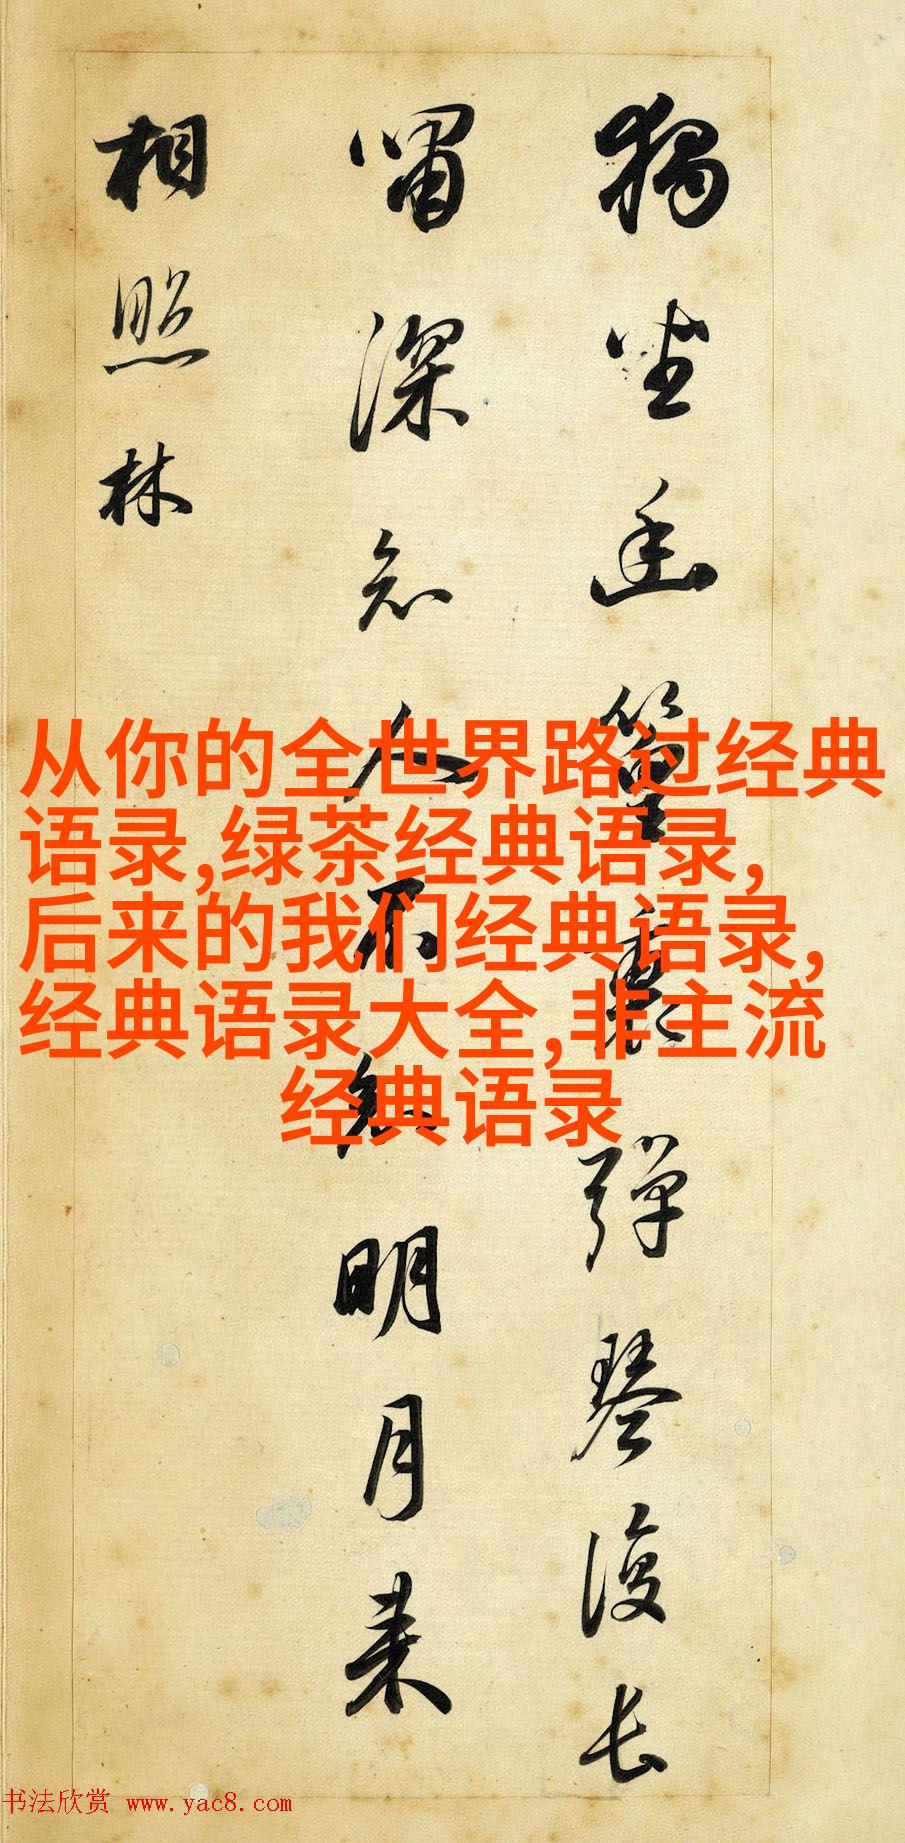 獨坐幽篁裏彈琴復長
嘯深知人不知明月來
相照林
从你的全世界路过经典
语录,绿茶经典语录,
后来的我们经典语录,
经典语录大全,非主流
经典语录
书法欣赏 www.yac8.com